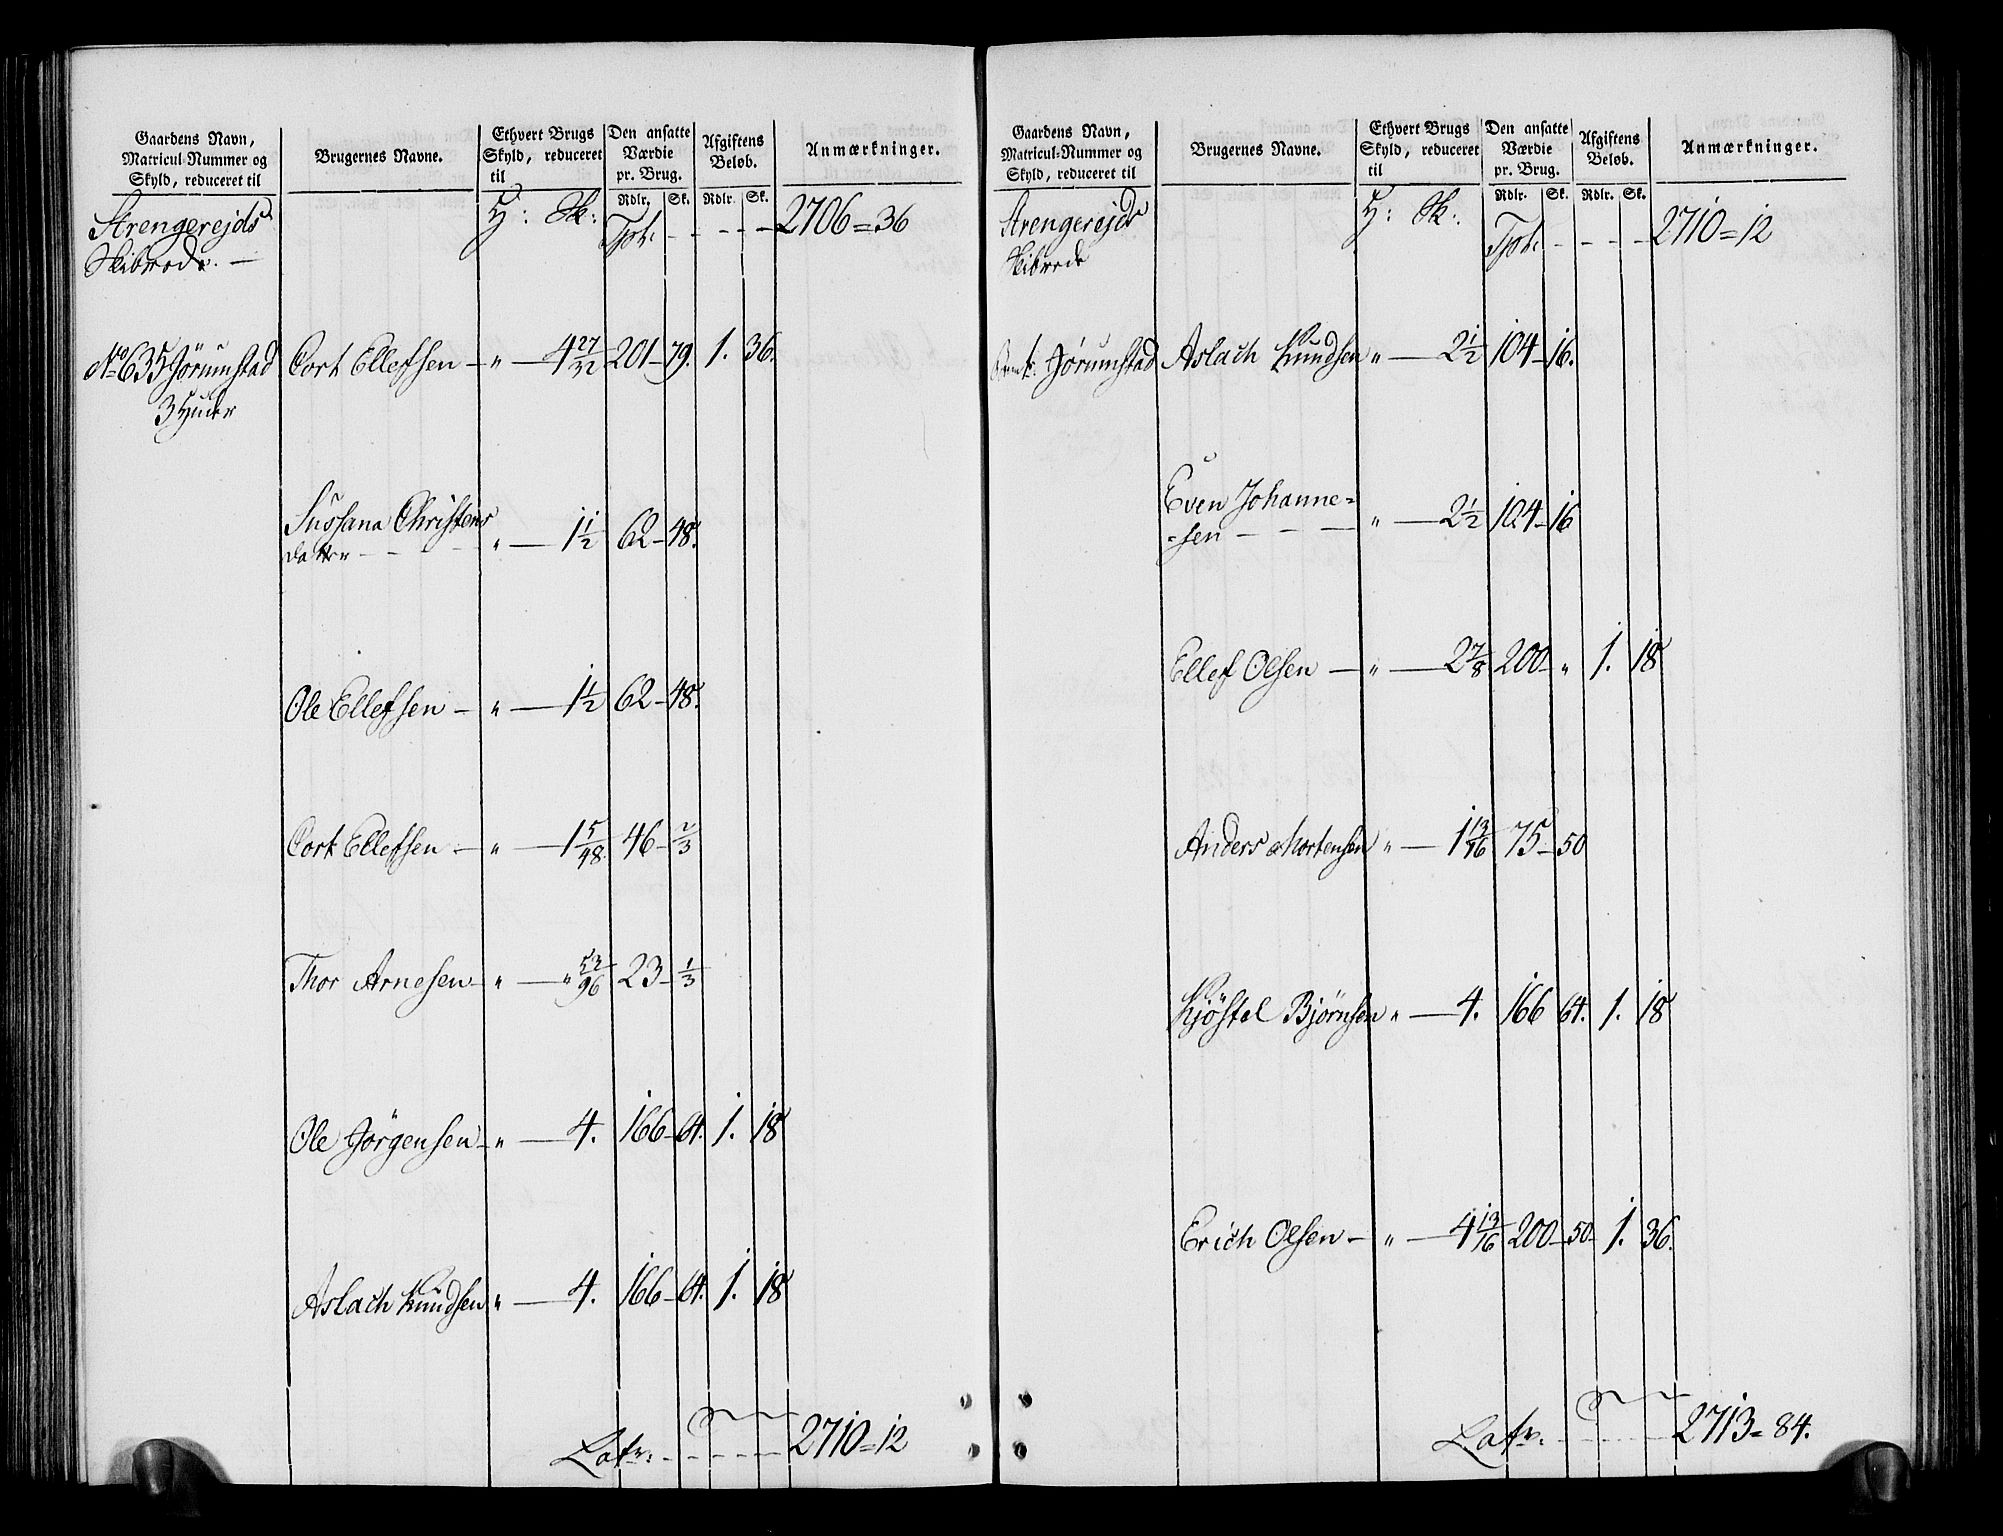 Gaardens Navn, Matricul-Nummer og Skyld, reduceret til
Brugernes Navne.
Ethvert Brugs Skyld, reduceret til
Den ansatte Værdie pr. Brug.
Afgiftens Beløb.
Anmærkninger.
Rdlr. Sk. Rdlr. Sk.
Strengerejds H: Sk: Tpt. - - - - 2706=36
Skibrede. —
No 635 Jörumstad Cort Ellefsen — " — 4 27/32 201-79. 1. 36.
3 Huder
Sussana Christens
datter - - - - " — 1 1/2 62-48.
Ole Ellefsen — " — 1 1/2 62-48.
Cort Ellefsen — " — 1 5/48. 46- 2/3
Thor Arnesen — " — " 53/96 23- 1/3
Ole Jörgensen — " — 4. 166-64. 1. 18
Aslach Knudsen " — 4. 166-64. 1. 18
Latr: - - - - 2710=12
Gaardens Navn, Matricul-Nummer og Skyld, reduceret til
Brugernes Navne.
Ethvert Brugs Skyld, reduceret til
Den ansatte Værdie pr. Brug.
Afgiftens Beløb.
Anmærkninger.
Rdlr. Sk. Rdlr. Sk.
Strengerejds H: Sk: Tpt. - - - - 2710=12
Skibrede
Jörumstad Aslach Knudsen " — 2 1/2 104-16.
Even Johanne=
=sen - - - " — 2 1/2 104-16
Ellef Olsen — " — 2 7/8 200- " 1. 18
Anders Mortensen " — 1 13/16 75-50
Kjöstel Björnsen " — 4. 166 64. 1. 18
Erich Olsen — " — 4 13/16 200-50- 1. 36.
Latr. - - - - 2713=84.